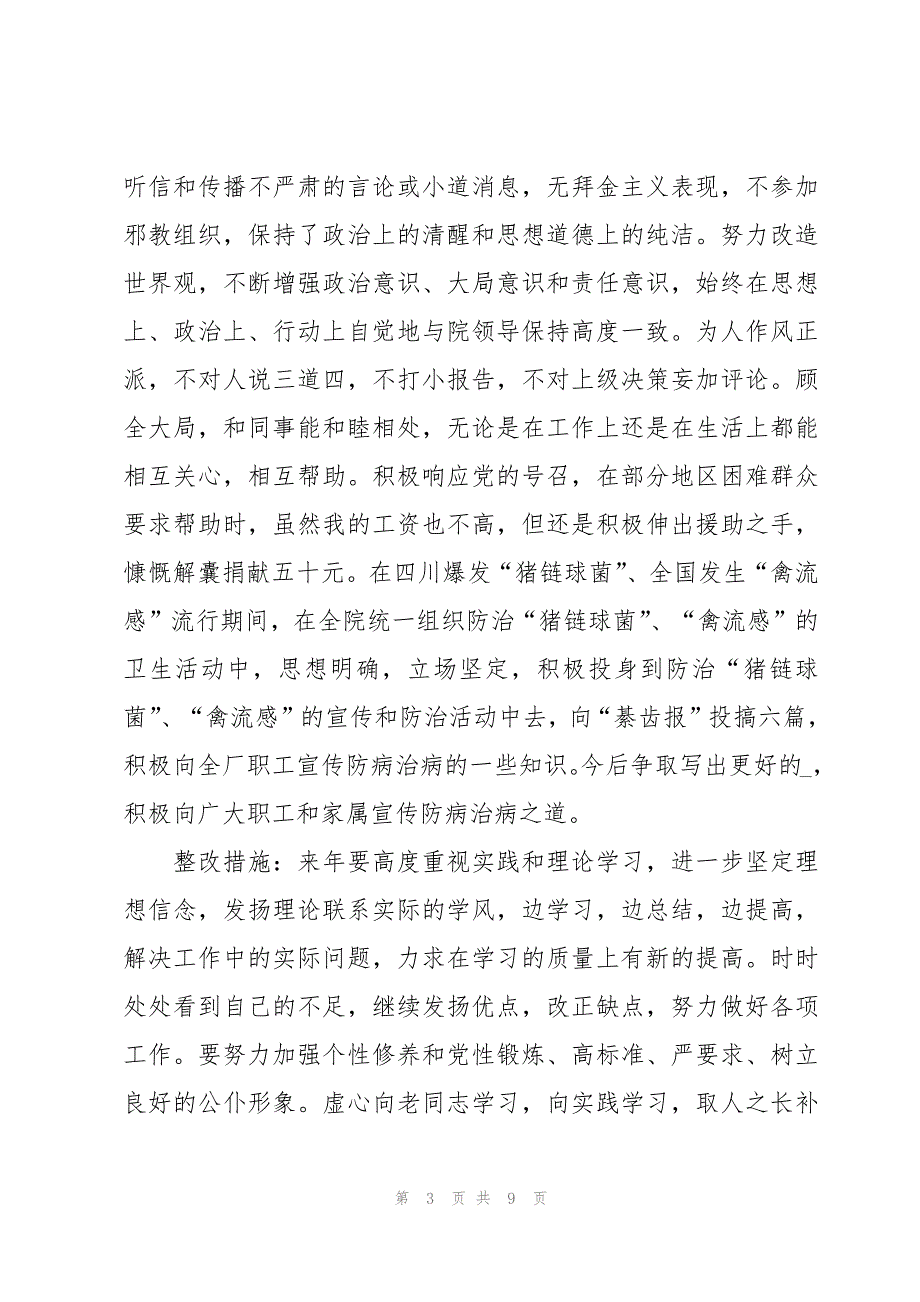 听信和传播不严肃的言论或小道消息，无拜金主义表现，不参加
邪教组织，保持了政治上的清醒和思想道德上的纯洁。努力改造
世界观，不断增强政治意识、大局意识和责任意识，始终在思想
上、政治上、行动上自觉地与院领导保持高度一致。为人作风正
派，不对人说三道四，不打小报告，不对上级决策妄加评论。顾
全大局，和同事能和睦相处，无论是在工作上还是在生活上都能
相互关心，相互帮助。积极响应党的号召，在部分地区困难群众
要求帮助时，虽然我的工资也不高，但还是积极伸出援助之手，
慷慨解囊捐献五十元。在四川爆发“猪链球菌”、全国发生“禽流
感”流行期间，在全院统一组织防治“猪链球菌”、“禽流感”的
卫生活动中，思想明确，立场坚定，积极投身到防治“猪链球
菌”、“禽流感”的宣传和防治活动中去，向“綦齿报”投搞六篇，
积极向全厂职工宣传防病治病的一些知识。今后争取写出更好的_，
积极向广大职工和家属宣传防病治病之道。
整改措施：来年要高度重视实践和理论学习，进一步坚定理
想信念，发扬理论联系实际的学风，边学习，边总结，边提高，
解决工作中的实际问题，力求在学习的质量上有新的提高。时时
处处看到自己的不足，继续发扬优点，改正缺点，努力做好各项
工作。要努力加强个性修养和党性锻炼、高标准、严要求、树立
良好的公仆形象。虚心向老同志学习，向实践学习，取人之长补
第 3 页 共 9 页